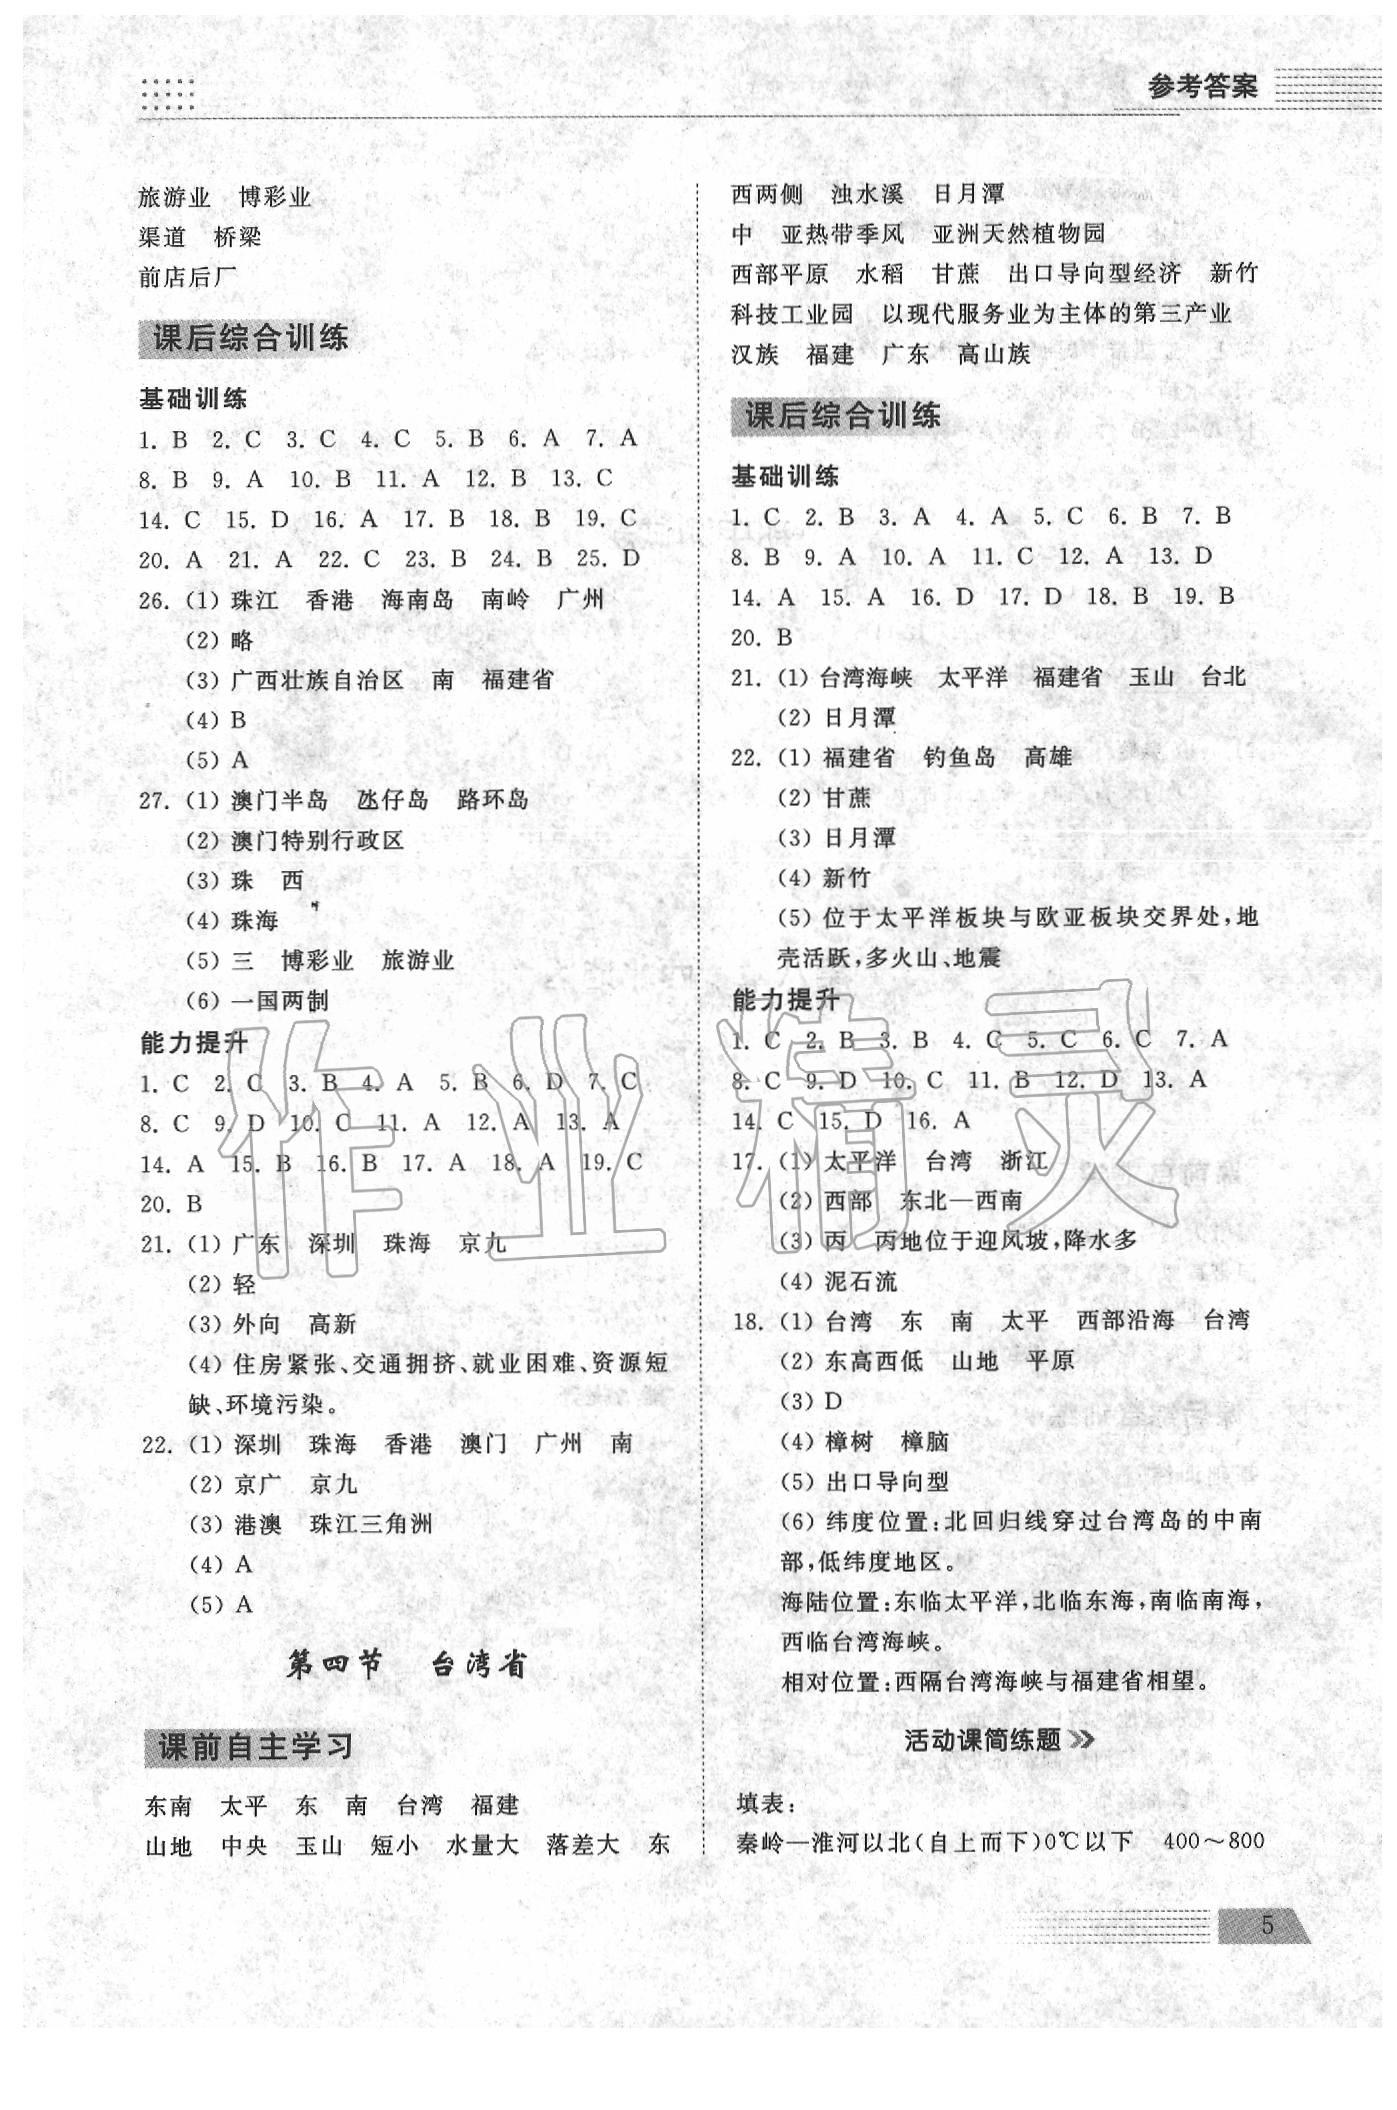 参考答案
旅游业　博彩业
渠道　桥梁
前店后厂
课后综合训练
基础训练
1. B 2. C 3. C 4. C 5. B 6. A 7. A
8. B 9. A 10. B 11. A 12. B 13. C
14. C 15. D 16. A 17. B 18. B 19. C
20. A 21. A 22. C 23. B 24. B 25. D
26. (1) 珠江　香港　海南岛　南岭　广州
(2) 略
(3) 广西壮族自治区　南　福建省
(4) B
(5) A
27. (1) 澳门半岛　氹仔岛　路环岛
(2) 澳门特别行政区
(3) 珠　西
(4) 珠海
(5) 三　博彩业　旅游业
(6) 一国两制
能力提升
1. C 2. C 3. B 4. A 5. B 6. D 7. C
8. C 9. D 10. C 11. A 12. A 13. A
14. A 15. B 16. B 17. A 18. A 19. C
20. B
21. (1) 广东　深圳　珠海　京九
(2) 轻
(3) 外向　高新
(4) 住房紧张、交通拥挤、就业困难、资源短
缺、环境污染。
22. (1) 深圳　珠海　香港　澳门　广州　南
(2) 京广　京九
(3) 港澳　珠江三角洲
(4) A
(5) A
第四节　台湾省
课前自主学习
东南　太平　东　南　台湾　福建
山地　中央　玉山　短小　水量大　落差大　东
西两侧　浊水溪　日月潭
中　亚热带季风　亚洲天然植物园
西部平原　水稻　甘蔗　出口导向型经济　新竹
科技工业园　以现代服务业为主体的第三产业
汉族　福建　广东　高山族
课后综合训练
基础训练
1. C 2. B 3. A 4. A 5. C 6. B 7. B
8. B 9. A 10. A 11. C 12. A 13. D
14. A 15. A 16. D 17. D 18. B 19. B
20. B
21. (1) 台湾海峡　太平洋　福建省　玉山　台北
(2) 日月潭
22. (1) 福建省　钓鱼岛　高雄
(2) 甘蔗
(3) 日月潭
(4) 新竹
(5) 位于太平洋板块与欧亚板块交界处,地
壳活跃,多火山、地震
能力提升
1. C 2. B 3. B 4. C 5. C 6. C 7. A
8. C 9. D 10. C 11. B 12. D 13. A
14. C 15. D 16. A
17. (1) 太平洋　台湾　浙江
(2) 西部　东北—西南
(3) 丙　丙地位于迎风坡,降水多
(4) 泥石流
18. (1) 台湾　东　南　太平　西部沿海　台湾
(2) 东高西低　山地　平原
(3) D
(4) 樟树　樟脑
(5) 出口导向型
(6) 纬度位置:北回归线穿过台湾岛的中南
部,低纬度地区。
海陆位置:东临太平洋,北临东海,南临南海,
西临台湾海峡。
相对位置:西隔台湾海峡与福建省相望。
活动课简练题
填表:
秦岭—淮河以北(自上而下)0℃以下　400～800
5
作业精灵